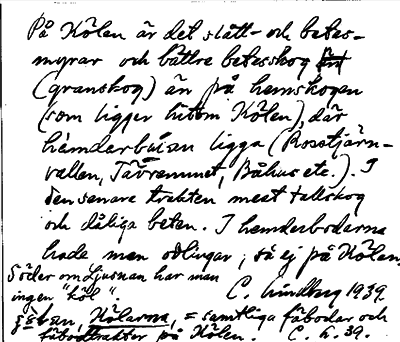 På Kölen är det slått- och betes-
myrar och bättre betesskog
(granskog) än på hemskogen
(som ligger hitom Kölen), där
hämderbuan ligga (Rosstjärn-
vallen, Tävremmet, Båhus etc.). I
den senare trakten mest tallskog
och dåliga beten. I hemderbodarna
hade man odlingar, så ej på Kölen.
Söder om Ljusnan har man
ingen "köl". C. Lindberg 1939.
Kölarna, = samtliga fäbodar och
fäbodtrakter på Kölen. C. L. 39.